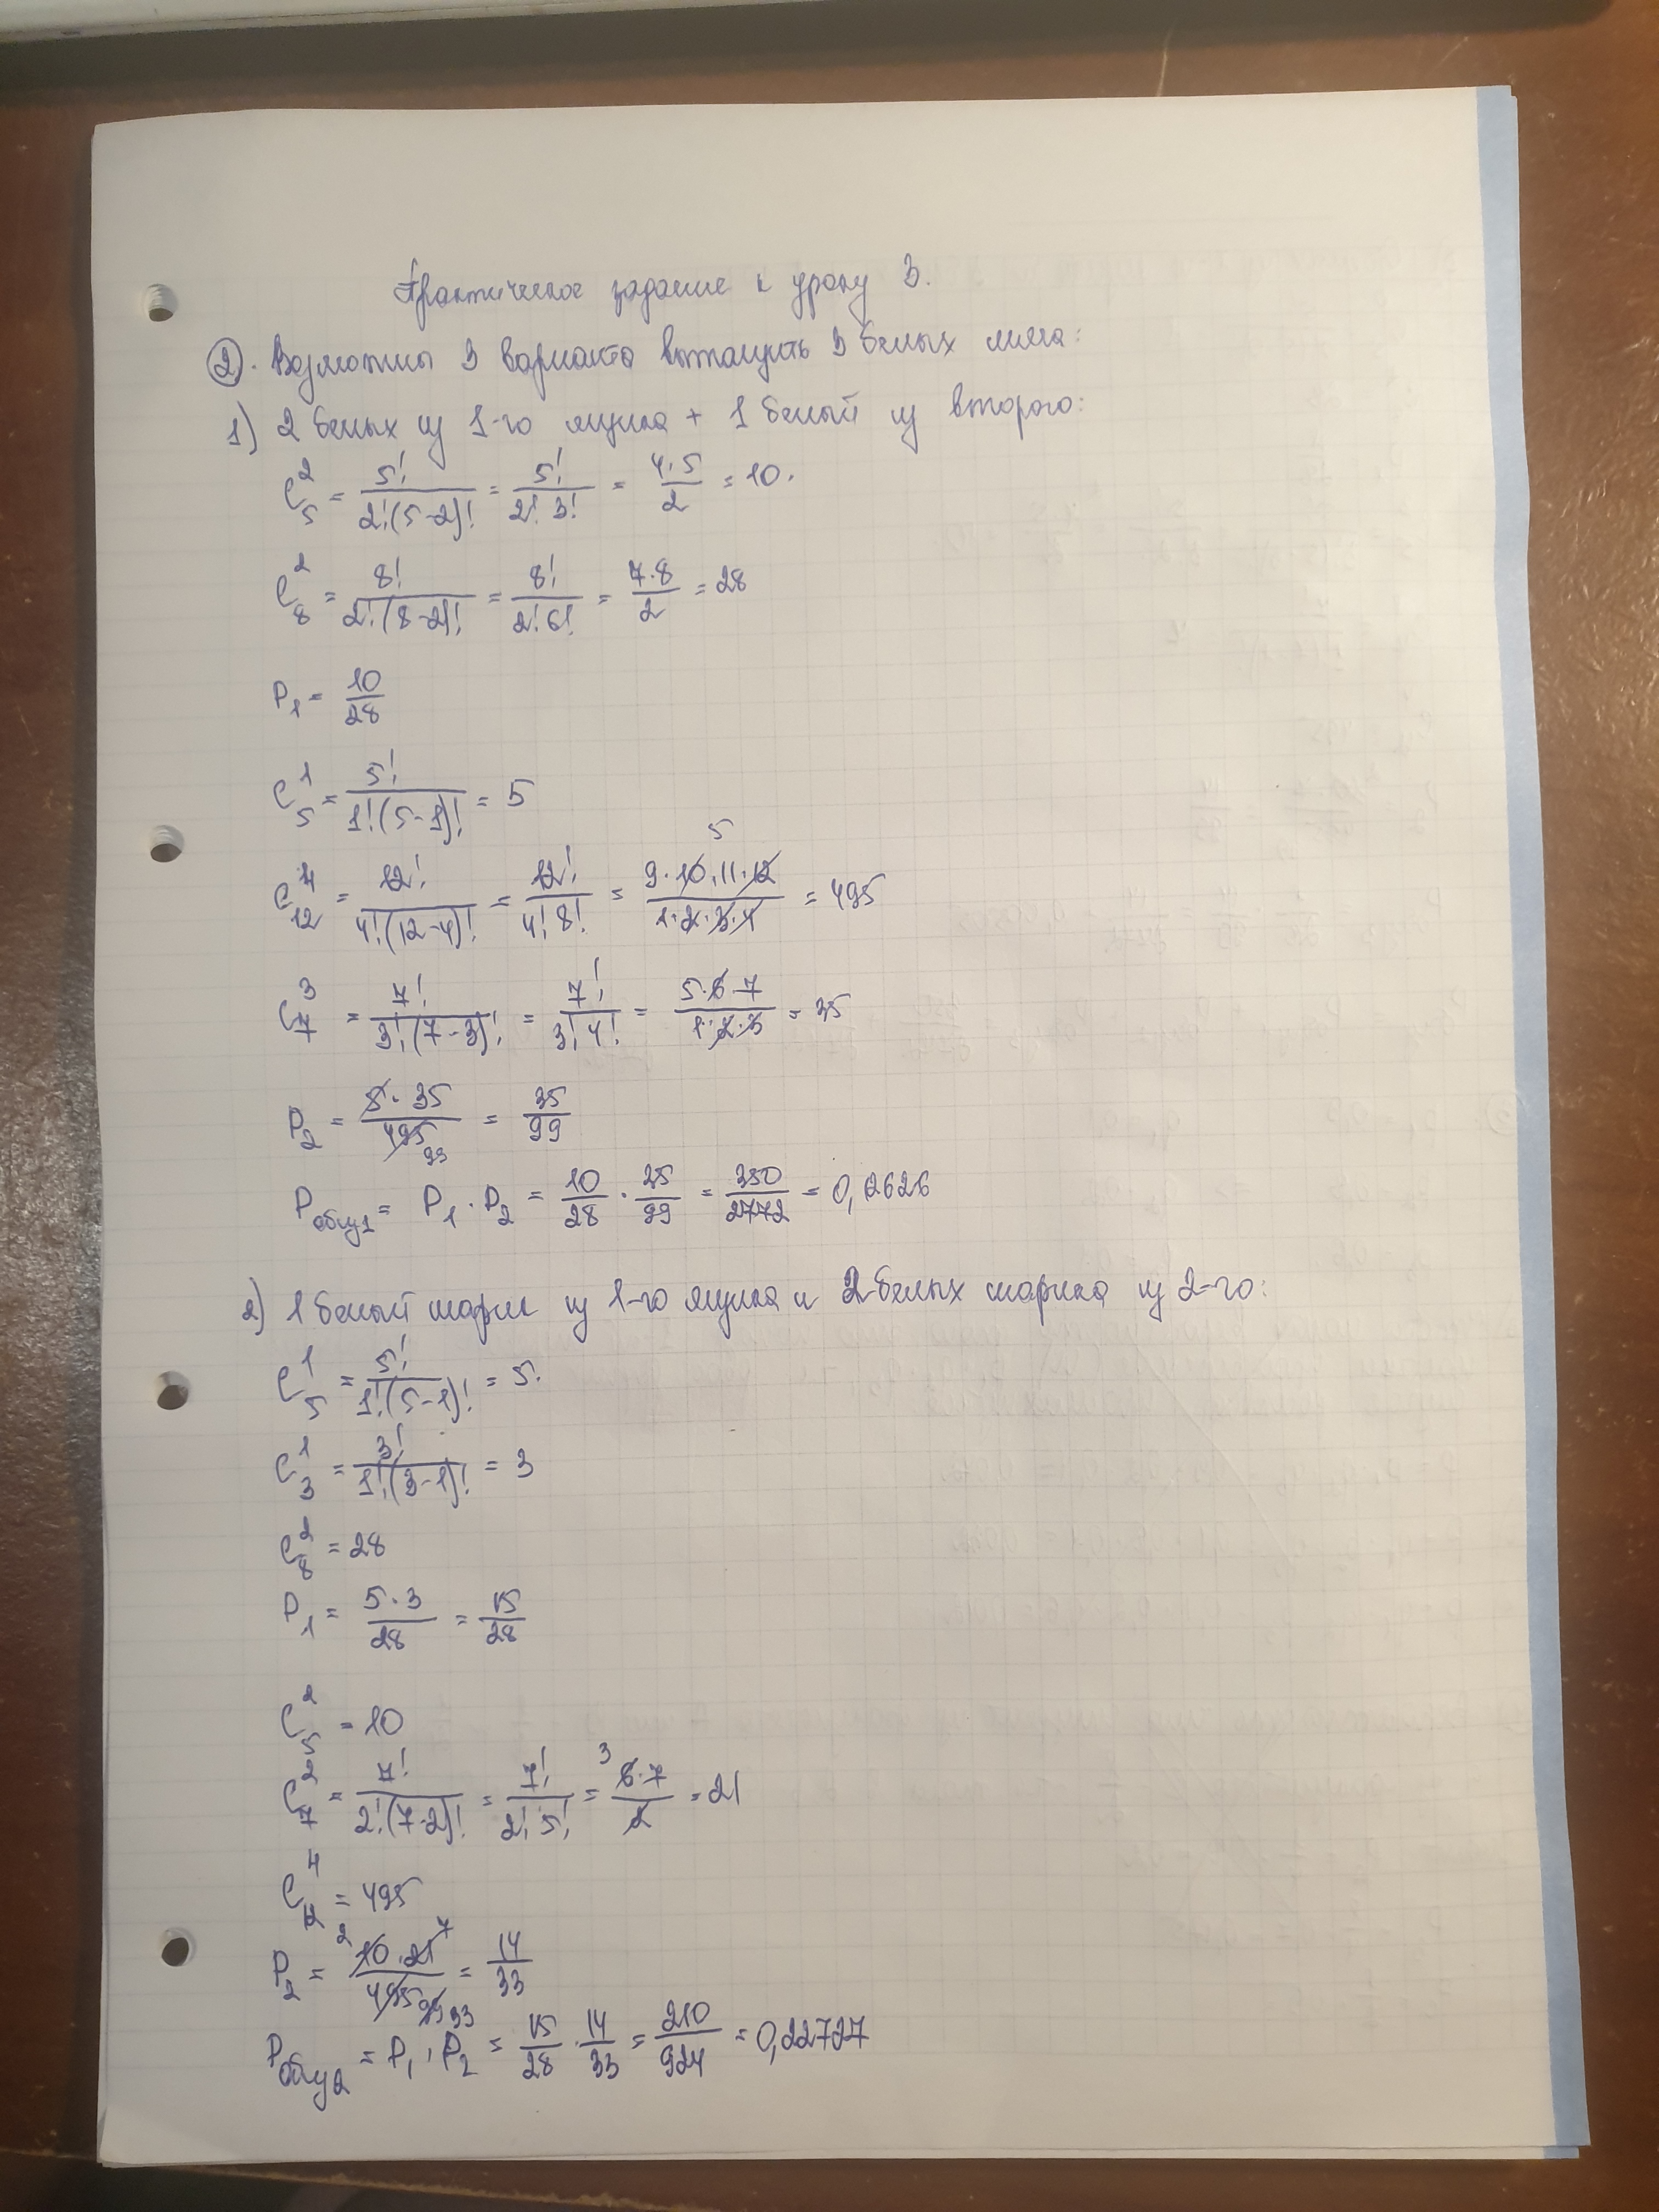 Практическое задание к уроку 3.
②. Возможны 3 варианта вытащить 3 белых мяча:
1) 2 белых из 1-го ящика + 1 белый из второго:
C₅² = 5!/(2!(5-2)!) = 5!/(2! 3!) = (4·5)/2 = 10.
C₈² = 8!/(2!(8-2)!) = 8!/(2! 6!) = (7·8)/2 = 28
P₁ = 10/28
C₅¹ = 5!/(1!(5-1)!) = 5
C₁₂⁴ = 12!/(4!(12-4)!) = 12!/(4! 8!) = (9·10·11·12)/(1·2·3·4) = 495
C₇³ = 7!/(3!(7-3)!) = 7!/(3! 4!) = (5·6·7)/(1·2·3) = 35
P₂ = (5·35)/495 = 35/99
Pобщ1 = P₁·P₂ = 10/28 · 35/99 = 350/2772 = 0,12626
2) 1 белый шарик из 1-го ящика и 2 белых шарика из 2-го:
C₅¹ = 5!/(1!(5-1)!) = 5.
C₃¹ = 3!/(1!(3-1)!) = 3
C₈² = 28
P₁ = (5·3)/28 = 15/28
C₅² = 10
C₇² = 7!/(2!(7-2)!) = 7!/(2! 5!) = (6·7)/2 = 21
C₁₂⁴ = 495
P₂ = (10·21)/495 = 14/33
Pобщ2 = P₁·P₂ = 15/28 · 14/33 = 210/924 = 0,22727